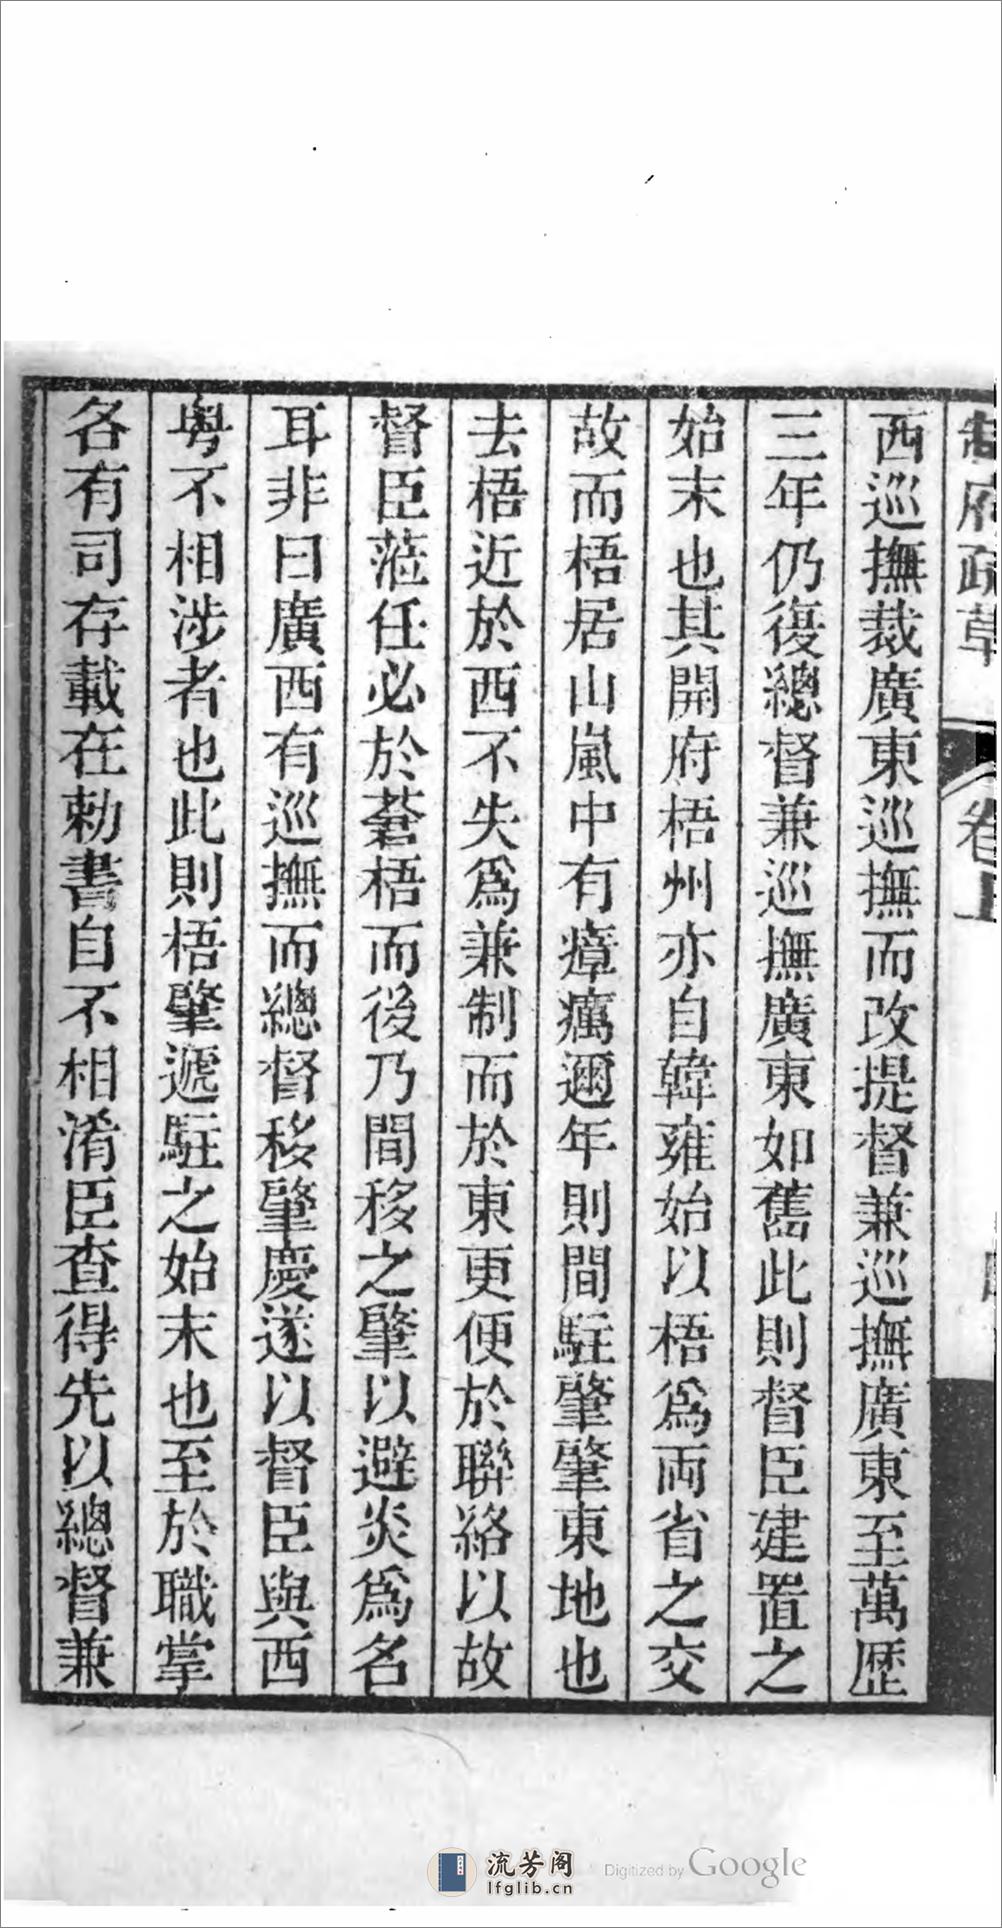 制府疏草
卷上
西巡撫裁廣東巡撫而改提督兼巡撫廣東至萬歷
三年仍復總督兼巡撫廣東如舊此則督臣建置之
始末也其開府梧州亦自韓雍始以梧為兩省之交
故而梧居山嵐中有瘴癘邇年則間駐肇肇東地也
去梧近於西不失為兼制而於東更便於聯絡以故
督臣蒞任必於蒼梧而後乃間移之肇以避炎為名
耳非曰廣西有巡撫而總督移肇慶遂以督臣與西
粵不相涉者也此則梧肇遞駐之始末也至於職掌
各有司存載在勅書自不相淆臣查得先以總督兼
流芳阁
lfglib.cn
Digitized by Google